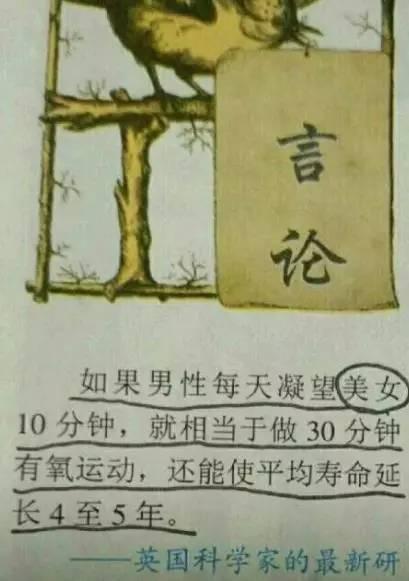 言论
如果男性每天凝望美女
10分钟，就相当于做30分钟
有氧运动，还能使平均寿命延
长4至5年。
——英国科学家的最新研